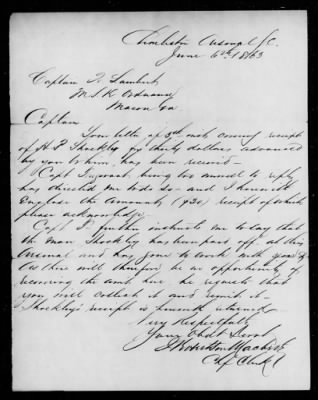 Charleston Arsenal S.C.
June 6th 1863
Captain T. Lambert
M.S.K. Ordnance
Macon Ga
Captain
Your letter of 3d inst covering receipt
of H. P. Shockley for thirty dollars advanced
by you to him, has been received—
Capt being too unwell to reply
has directed me to do so— and I herewith
Enclose the amount ($30) receipt of which
please acknowledge.
Capt. I. further instructs me to say that
the man Shockley has been paid off at this
Arsenal and has gone to work with you &
As there will therefore be no opportunity of
recovering the amt here, he requests that
you will collect it and remit it—
Shockley's receipt is herewith returned
Very Respectfully
Your Obdt Servt
J. Robertson
Chf Clerk